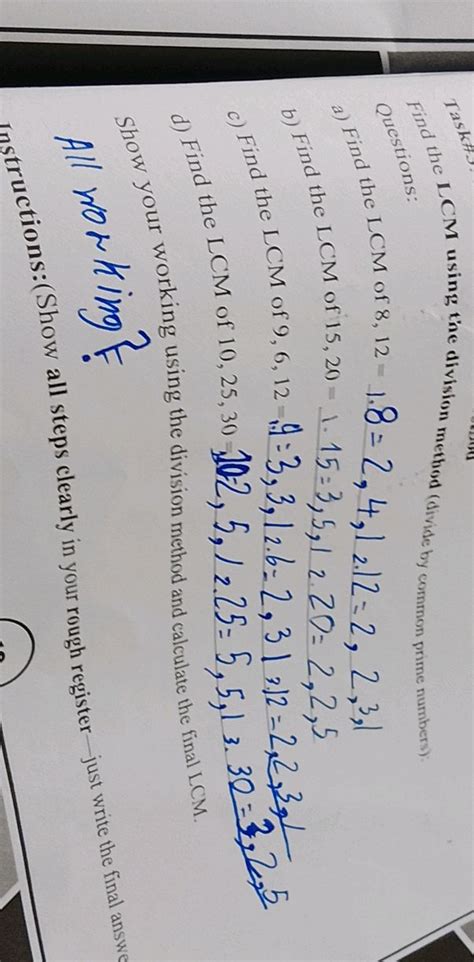 Task#
Find the LCM using the division method (divide by common prime numbers):
Questions:
a) Find the LCM of 8, 12 = 1. 8 = 2, 4, 1 2. 12 = 2, 2, 3, 1
b) Find the LCM of 15, 20 = 1. 15 = 3, 5, 1 2. 20 = 2, 2, 5
c) Find the LCM of 9, 6, 12 = 1. 9 = 3, 3, 1 2. 6 = 2, 3 1 3. 12 = 2, 2, 3, 1
d) Find the LCM of 10, 25, 30 = 10 = 2, 5, 1 2. 25 = 5, 5, 1 3. 30 = 3, 2, 5
Show your working using the division method and calculate the final LCM.
All working?
Instructions:(Show all steps clearly in your rough register—just write the final answe